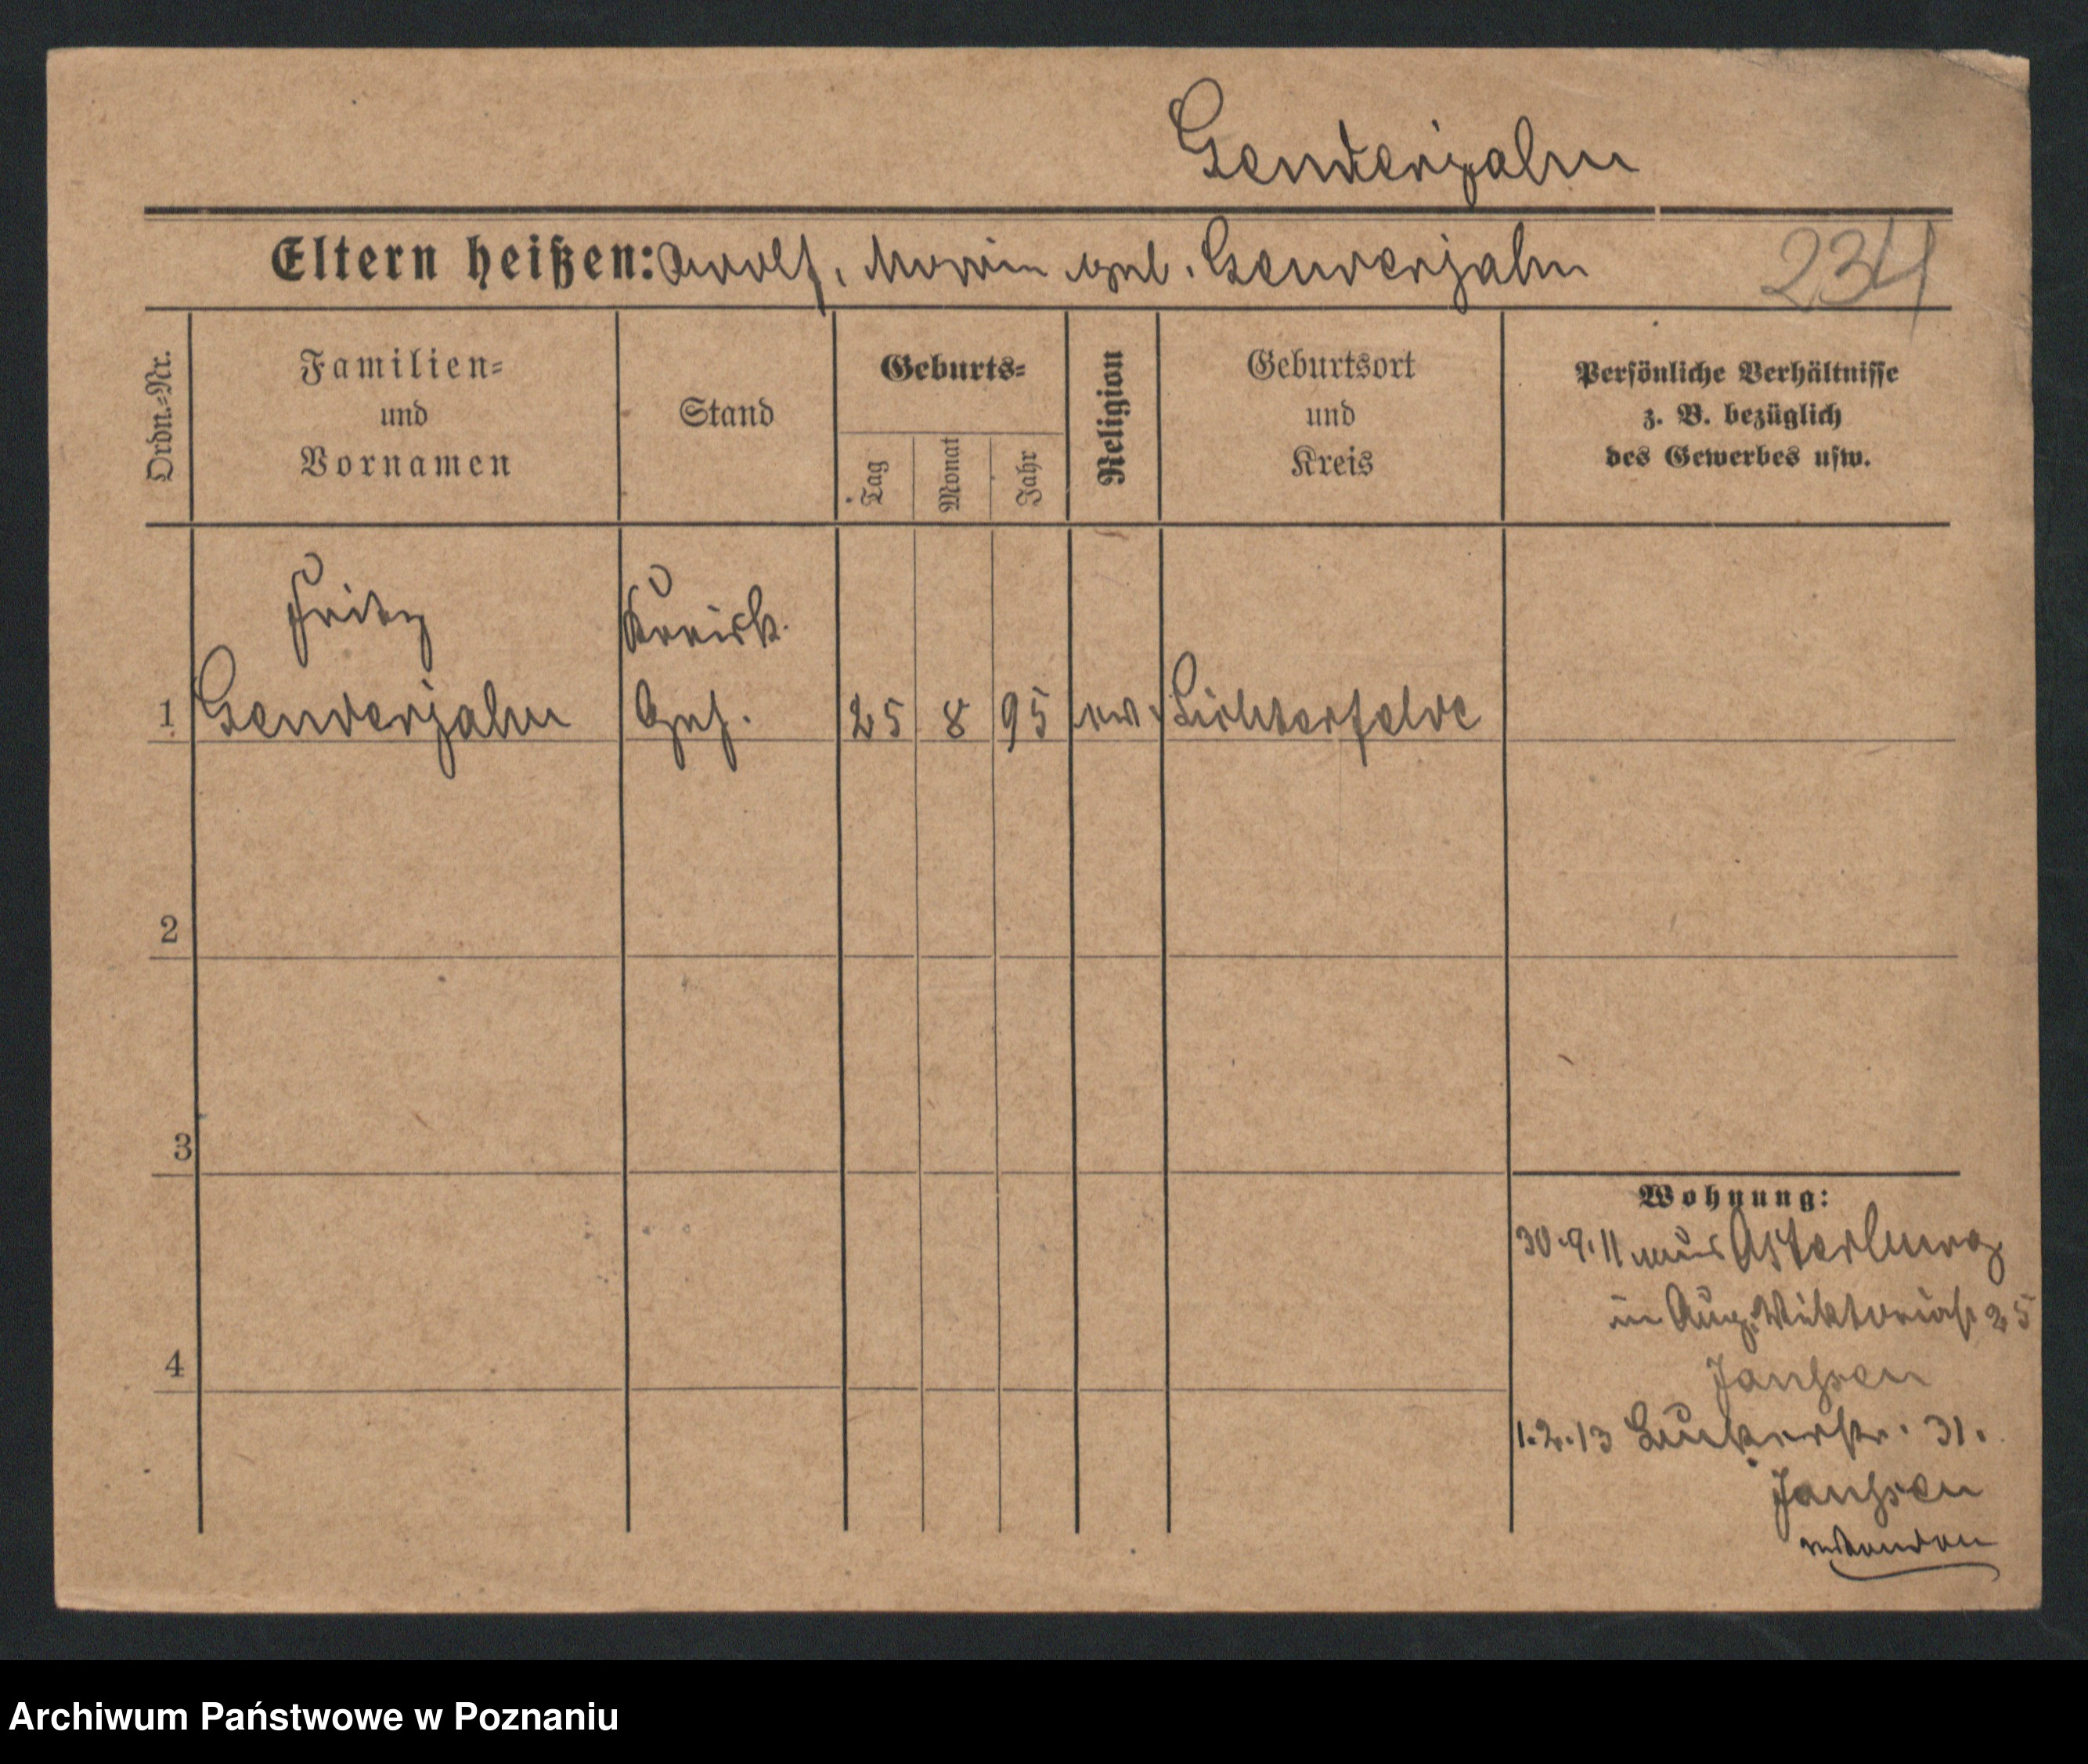 Genderjahn
Eltern heißen: Adolf, Marie geb. Genderjahn
234
Ordn.=Nr.
Familien=
und
Vornamen
Stand
Geburts=
Tag
Monat
Jahr
Religion
Geburtsort
und
Kreis
Persönliche Verhältnisse
z. B. bezüglich
des Gewerbes usw.
Fritz
1 Genderjahn 25 8 95 ev. Lichterfelde
2
3
4
Wohnung:
30.9.11 aus Osterburg
in Aug. Viktoriast 25
Janssen
1.2.13 31.
Janssen
Archiwum Państwowe w Poznaniu